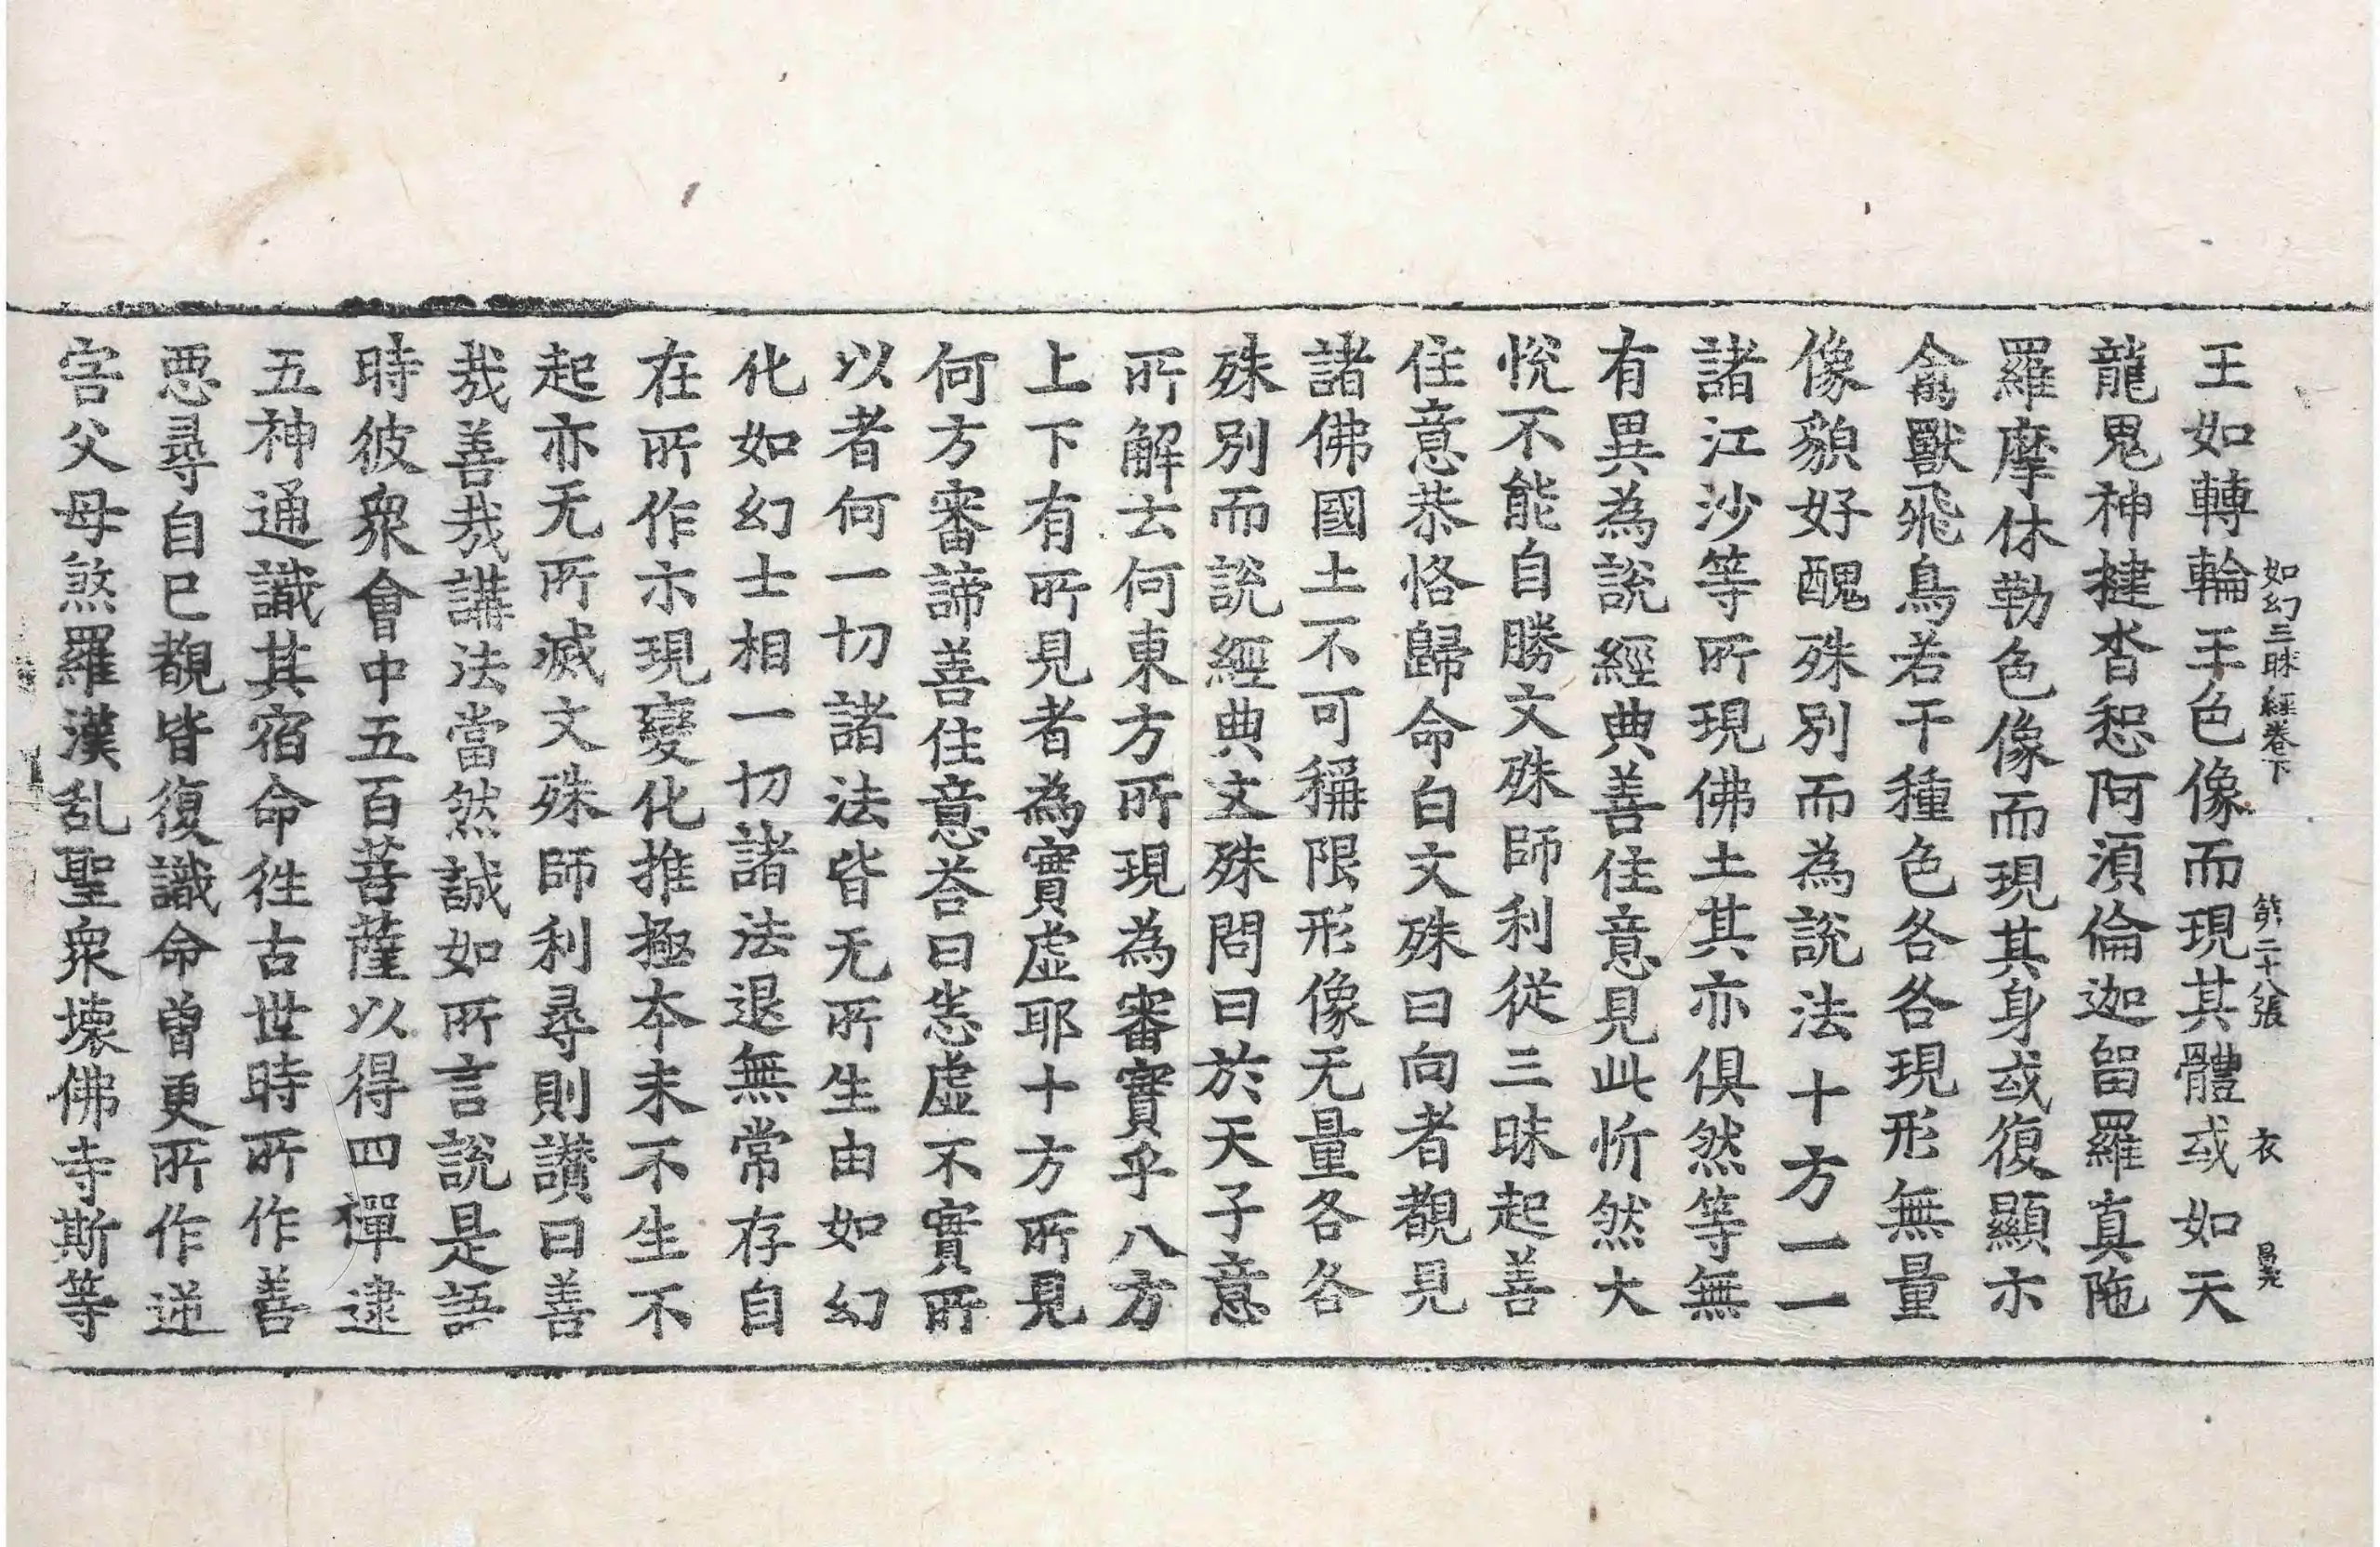 如幻三昧經卷下 第二十八張 衣
王如轉輪王色像而現其體或如天
龍鬼神揵沓惒阿須倫迦留羅真陁
羅摩休勒色像而現其身或復顯示
禽獸飛鳥若干種色各各現形無量
像貌好醜殊別而為說法十方一一
諸江沙等所現佛土其亦俱然等無
有異為說經典善住意見此忻然大
悅不能自勝文殊師利從三昧起善
住意恭恪歸命白文殊曰向者覩見
諸佛國土不可稱限形像无量各各
殊別而說經典文殊問曰於天子意
所解云何東方所現為審實乎八方
上下有所見者為實虛耶十方所見
何方審諦善住意荅曰悉虛不實所
以者何一切諸法皆无所生由如幻
化如幻士相一切諸法退無常存自
在所作示現變化推極本末不生不
起亦无所滅文殊師利尋則讃曰善
哉善哉講法當然誠如所言說是語
時彼衆會中五百菩薩以得四禪逮
五神通識其宿命徃古世時所作善
惡尋自已覩皆復識命曾更所作逆
害父母煞羅漢乱聖衆壞佛寺斯等